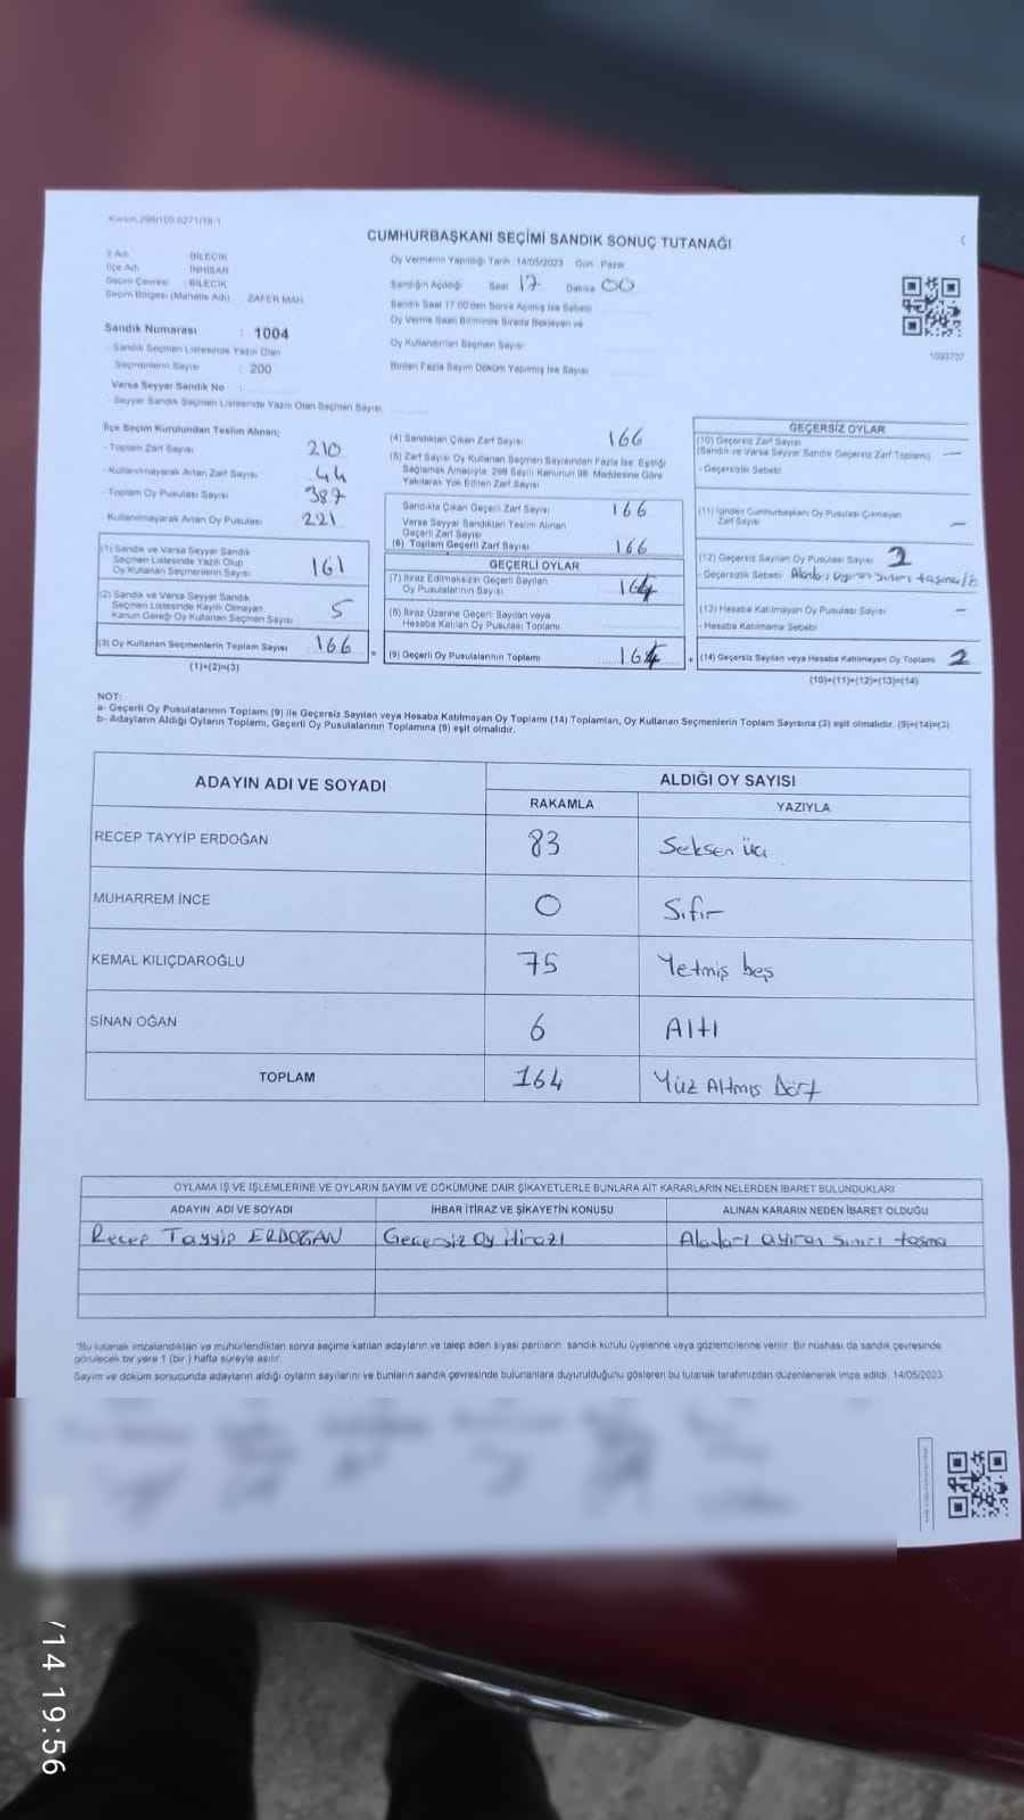 CUMHURBAŞKANI SEÇİMİ SANDIK SONUÇ TUTANAĞI
İl Adı BİLECİK
İlçe Adı İNHİSAR
Seçim Çevresi BİLECİK
Seçim Bölgesi (Mahalle Adı) ZAFER MAH
Sandık Numarası : 1004
Sandık Seçmen Listesinde Yazılı Olan
Seçmenlerin Sayısı : 200
Varsa Seyyar Sandık No :
Seyyar Sandık Seçmen Listesinde Yazılı Olan Seçmen Sayısı
Oy Vermenin Yapıldığı Tarih 14/05/2023 Gün Pazar
Sandığın Açıldığı Saat 17 Dakika 00
Sandık Saat 17.00'den Sonra Açılmış İse Sebebi
Oy Verme Saati Bitiminde Sırada Bekleyen ve
Oy Kullandırılan Seçmen Sayısı
Birden Fazla Sayım Döküm Yapılmış İse Sayısı
1093707
İlçe Seçim Kurulundan Teslim Alınan;
- Toplam Zarf Sayısı 210
- Kullanılmayarak Artan Zarf Sayısı 44
- Toplam Oy Pusulası Sayısı 387
- Kullanılmayarak Artan Oy Pusulası 221
(1) Sandık ve Varsa Seyyar Sandık
Seçmen Listesinde Yazılı Olup
Oy Kullanan Seçmenlerin Sayısı 161
(2) Sandık ve Varsa Seyyar Sandık
Seçmen Listesinde Kayıtlı Olmayan
Kanun Gereği Oy Kullanan Seçmen Sayısı 5
(3) Oy Kullanan Seçmenlerin Toplam Sayısı 166
(1)+(2)=(3)
(4) Sandıktan Çıkan Zarf Sayısı 166
(5) Zarf Sayısı Oy Kullanan Seçmen Sayısından Fazla İse Eşitliği
Sağlamak Amacıyla 298 Sayılı Kanunun 98. Maddesine Göre
Yakılarak Yok Edilen Zarf Sayısı
Sandıkta Çıkan Geçerli Zarf Sayısı 166
Varsa Seyyar Sandıktan Teslim Alınan
Geçerli Zarf Sayısı
(6) Toplam Geçerli Zarf Sayısı 166
GEÇERLİ OYLAR
(7) İtiraz Edilmeksizin Geçerli Sayılan
Oy Pusulalarının Sayısı 164
(8) İtiraz Üzerine Geçerli Sayılan veya
Hesaba Katılan Oy Pusulası Toplamı
= (9) Geçerli Oy Pusulalarının Toplamı 164
GEÇERSİZ OYLAR
(10) Geçersiz Zarf Sayısı
(Sandık ve Varsa Seyyar Sandık Geçersiz Zarf Toplamı) —
- Geçersizlik Sebebi
(11) İçinden Cumhurbaşkanı Oy Pusulası Çıkmayan
Zarf Sayısı —
(12) Geçersiz Sayılan Oy Pusulası Sayısı 2
- Geçersizlik Sebebi
(13) Hesaba Katılmayan Oy Pusulası Sayısı —
- Hesaba Katılmama Sebebi
+ (14) Geçersiz Sayılan veya Hesaba Katılmayan Oy Toplamı 2
(10)+(11)+(12)+(13)=(14)
NOT:
a- Geçerli Oy Pusulalarının Toplamı (9) ile Geçersiz Sayılan veya Hesaba Katılmayan Oy Toplamı (14) Toplamları, Oy Kullanan Seçmenlerin Toplam Sayısına (3) eşit olmalıdır. (9)+(14)=(3)
b- Adayların Aldığı Oyların Toplamı, Geçerli Oy Pusulalarının Toplamına (9) eşit olmalıdır.
ADAYIN ADI VE SOYADI ALDIĞI OY SAYISI
RAKAMLA YAZIYLA
RECEP TAYYİP ERDOĞAN 83 Seksen üç
MUHARREM İNCE 0 Sıfır
KEMAL KILIÇDAROĞLU 75 Yetmiş beş
SİNAN OĞAN 6 Altı
TOPLAM 164 Yüz Altmış Dört
OYLAMA İŞ VE İŞLEMLERİNE VE OYLARIN SAYIM VE DÖKÜMÜNE DAİR ŞİKAYETLERLE BUNLARA AİT KARARLARIN NELERDEN İBARET BULUNDUKLARI
ADAYIN ADI VE SOYADI İHBAR İTİRAZ VE ŞİKAYETİN KONUSU ALINAN KARARIN NEDEN İBARET OLDUĞU
Recep Tayyip ERDOĞAN Geçersiz Oy itirazı Alanları ayıran sınırı taşma
*Bu tutanak imzalandıktan ve mühürlendikten sonra seçime katılan adayların ve talep eden siyasi partilerin sandık kurulu üyelerine veya gözlemcilerine verilir. Bir nüshası da sandık çevresinde
görülecek bir yere 1 (bir) hafta süreyle asılır.
Sayım ve döküm sonucunda adayların aldığı oyların sayılarını ve bunların sandık çevresinde bulunanlara duyurulduğunu gösteren bu tutanak tarafımızdan düzenlenerek imza edildi. 14/05/2023
/14 19:56